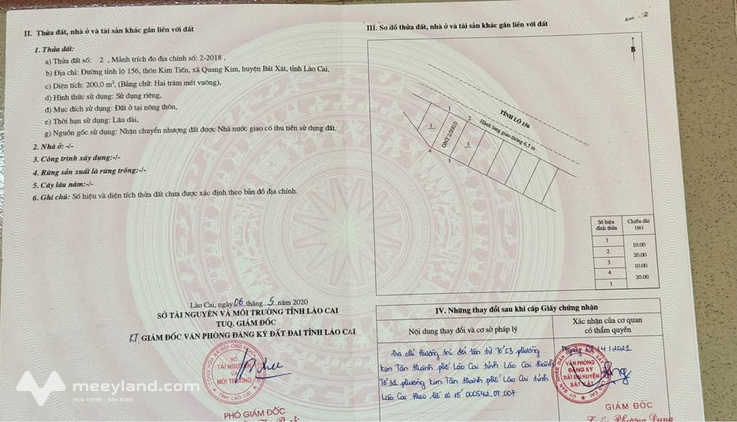 II. Thửa đất, nhà ở và tài sản khác gắn liền với đất
1. Thửa đất:
a) Thửa đất số: 2 , Mảnh trích đo địa chính số: 2-2018 ,
b) Địa chỉ: Đường tỉnh lộ 156, thôn Kim Tiến, xã Quang Kim, huyện Bát Xát, tỉnh Lào Cai,
c) Diện tích: 200,0 m², (Bằng chữ: Hai trăm mét vuông),
d) Hình thức sử dụng: Sử dụng riêng,
đ) Mục đích sử dụng: Đất ở tại nông thôn,
e) Thời hạn sử dụng: Lâu dài,
g) Nguồn gốc sử dụng: Nhận chuyển nhượng đất được Nhà nước giao có thu tiền sử dụng đất.
2. Nhà ở: -/-
3. Công trình xây dựng:-/-
4. Rừng sản xuất là rừng trồng:-/-
5. Cây lâu năm:-/-
6. Ghi chú: Số hiệu và diện tích thửa đất chưa được xác định theo bản đồ địa chính.
Lào Cai, ngày 06 tháng 5 năm 2020
SỞ TÀI NGUYÊN VÀ MÔI TRƯỜNG TỈNH LÀO CAI
TUQ. GIÁM ĐỐC
KT. GIÁM ĐỐC VĂN PHÒNG ĐĂNG KÝ ĐẤT ĐAI TỈNH LÀO CAI
SỞ
TÀI NGUYÊN
VÀ
MÔI TRƯỜNG
PHÓ GIÁM ĐỐC
meeyland.com
III. Sơ đồ thửa đất, nhà ở và tài sản khác gắn liền với đất
B
TỈNH LỘ 156
Hành lang giao thông 6,5 m
1
2
1
ONT 2/200,0
3
4
3
Số hiệu đỉnh thửa
Chiều dài (m)
1
10.00
2
20.00
3
10.00
4
20.00
1
IV. Những thay đổi sau khi cấp Giấy chứng nhận
Nội dung thay đổi và cơ sở pháp lý
Xác nhận của cơ quan có thẩm quyền
Địa chỉ thường trú đổi từ Tổ 53 phường
Kim Tân thành phố Lào Cai tỉnh Lào Cai thành
Tổ 31 phường Kim Tân thành phố Lào Cai tỉnh
Lào Cai theo hồ sơ số 000542
VĂN PHÒNG
ĐĂNG KÝ
ĐẤT ĐAI HUYỆN
BÁT XÁT
GIÁM ĐỐC